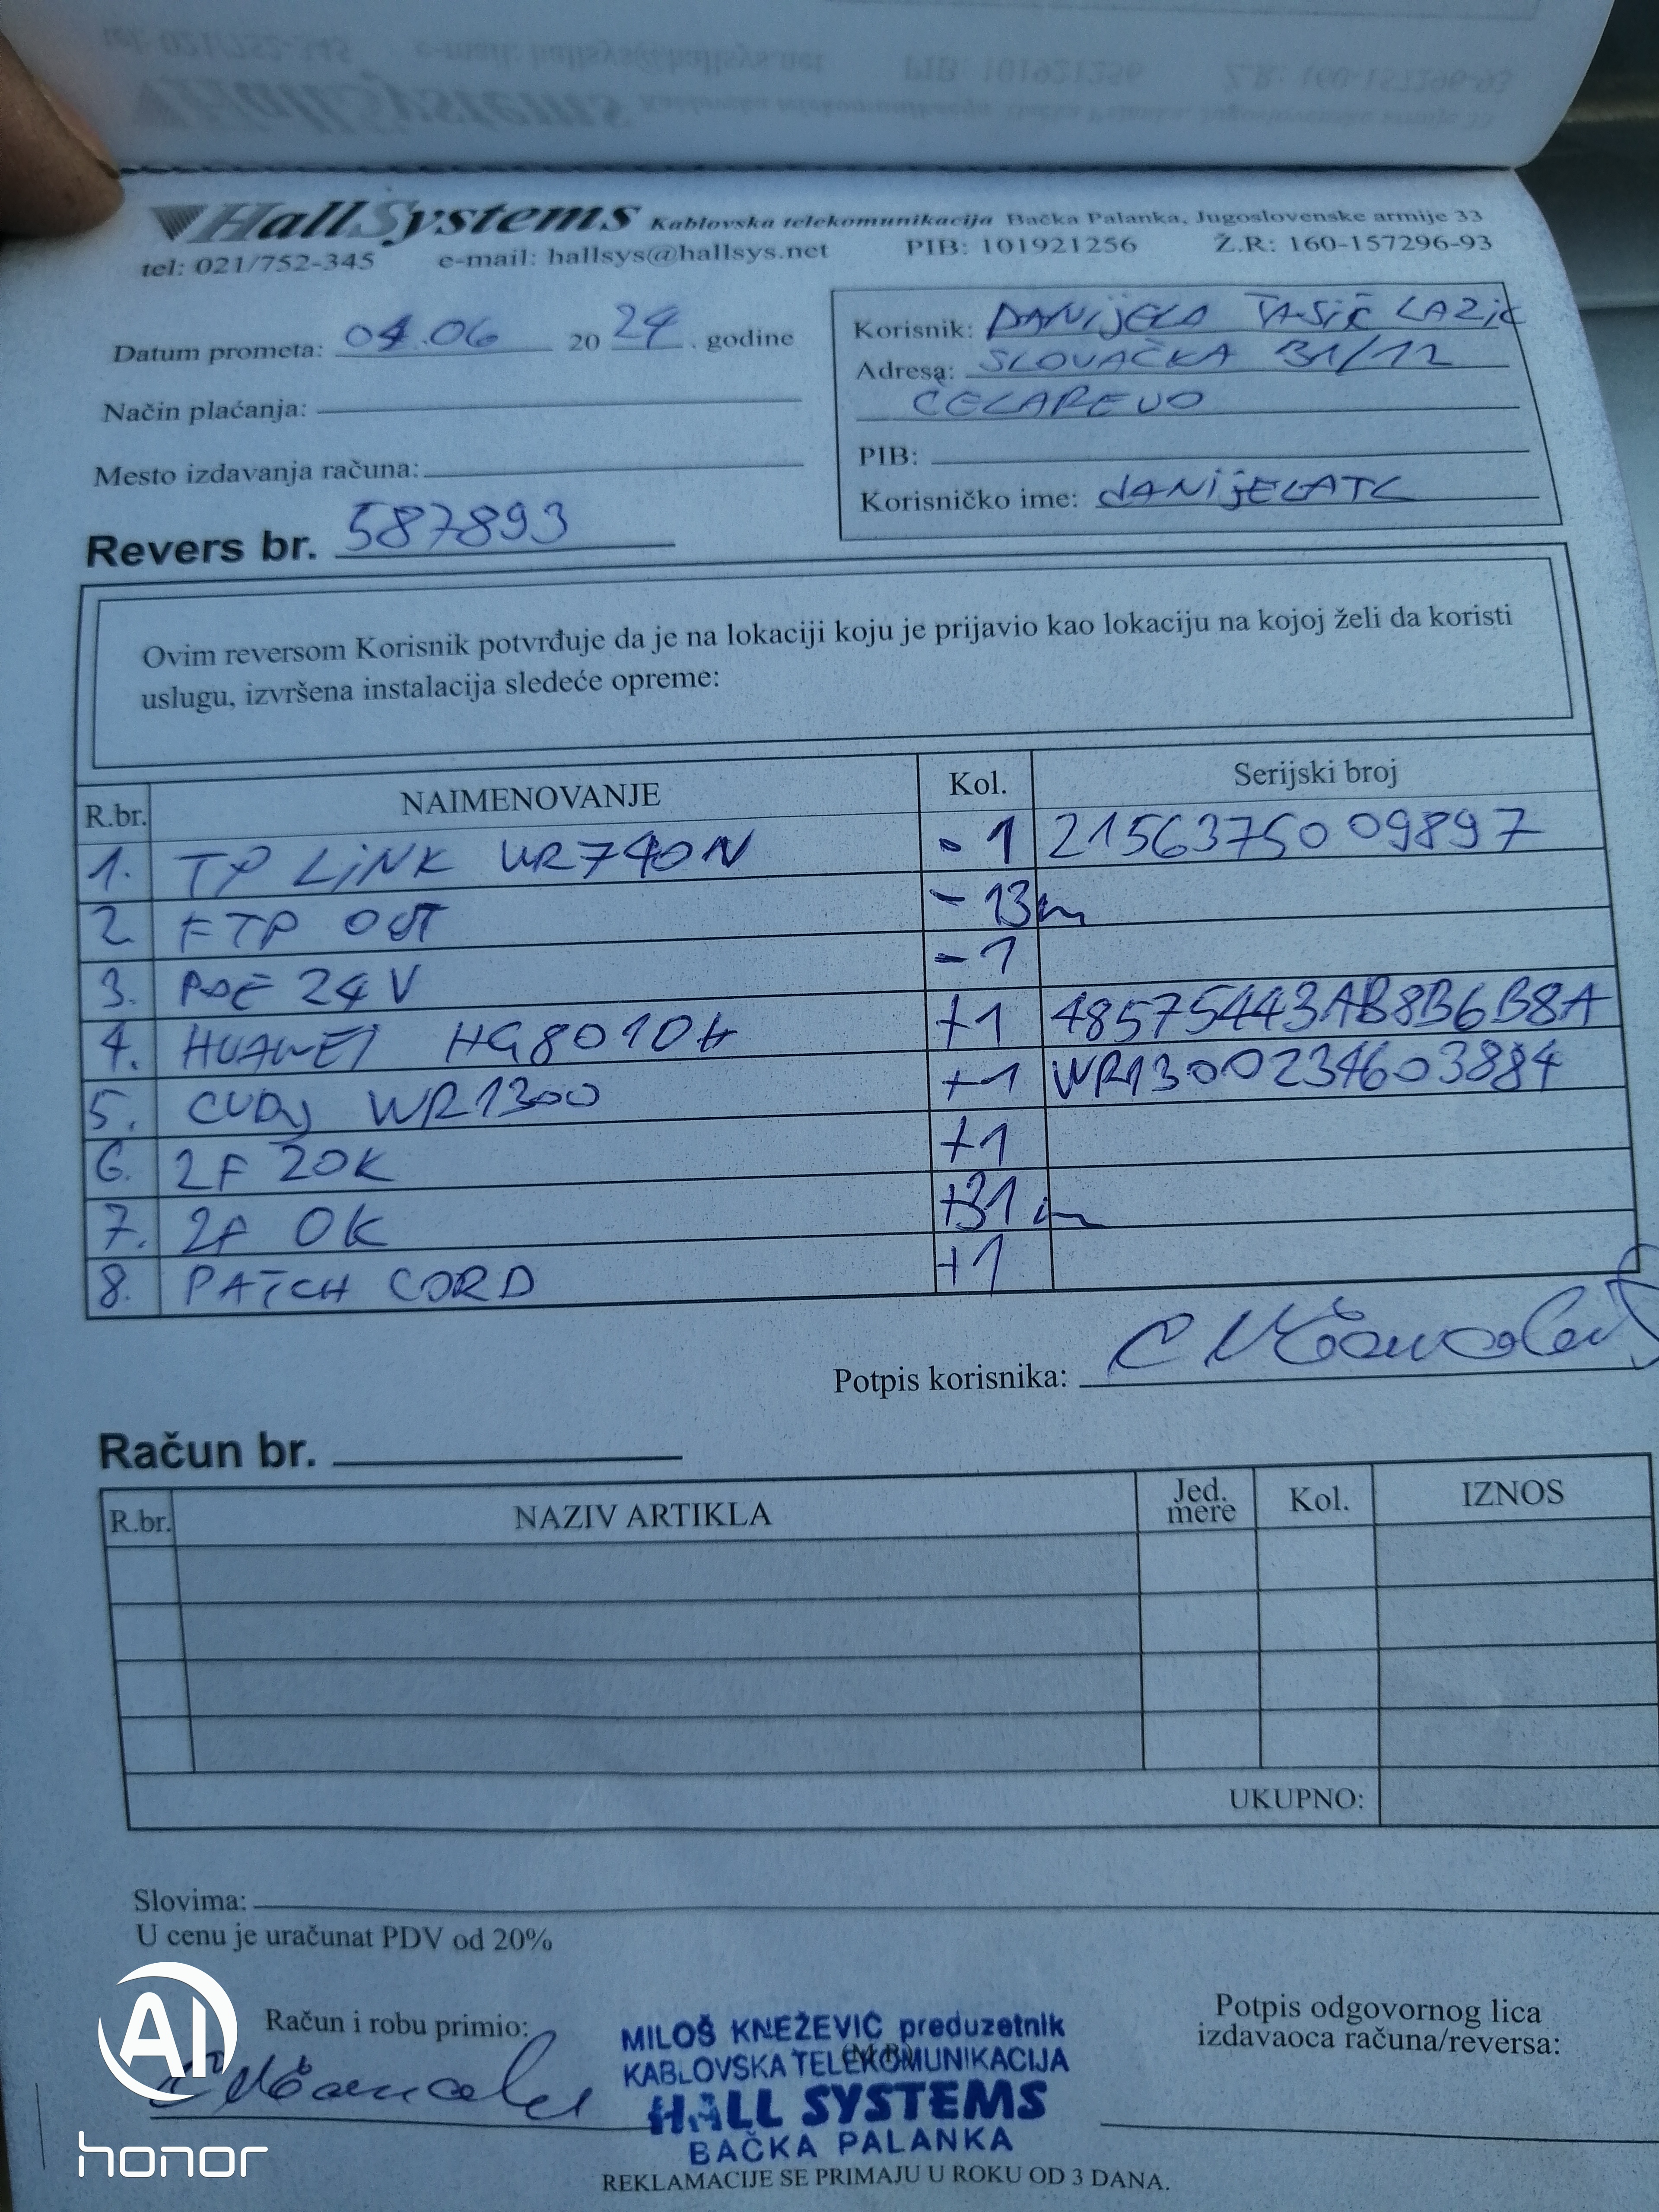 HallSystems Kablovska telekomunikacija Bačka Palanka, Jugoslovenske armije 33
tel: 021/752-345 e-mail: hallsys@hallsys.net PIB: 101921256 Ž.R: 160-157296-93
Datum prometa: 04.06 20 24 . godine
Način plaćanja:
Mesto izdavanja računa:
Korisnik: DANIJELA TASIĆ LAZIĆ
Adresa: SLOVAČKA 31/12
ČELAREVO
PIB:
Korisničko ime: DANIJELATL
Revers br. 587893
Ovim reversom Korisnik potvrđuje da je na lokaciji koju je prijavio kao lokaciju na kojoj želi da koristi
uslugu, izvršena instalacija sledeće opreme:
R.br. NAIMENOVANJE Kol. Serijski broj
1. TP LINK WR740N - 1 2156375009897
2. FTP OUT - 13m
3. POE 24V - 1
4. HUAWEI HG8010H +1 48575443AB8B6B8A
5. CUDY WR1300 +1 WR1300234603884
6. 2F 20K +1
7. 2F OK +31m
8. PATCH CORD +1
Potpis korisnika:
Račun br.
R.br. NAZIV ARTIKLA Jed. mere Kol. IZNOS
UKUPNO:
Slovima:
U cenu je uračunat PDV od 20%
Račun i robu primio:
MILOŠ KNEŽEVIĆ preduzetnik
KABLOVSKA TELEKOMUNIKACIJA
HALL SYSTEMS
BAČKA PALANKA
(M.P.)
Potpis odgovornog lica
izdavaoca računa/reversa:
REKLAMACIJE SE PRIMAJU U ROKU OD 3 DANA.
AI
honor